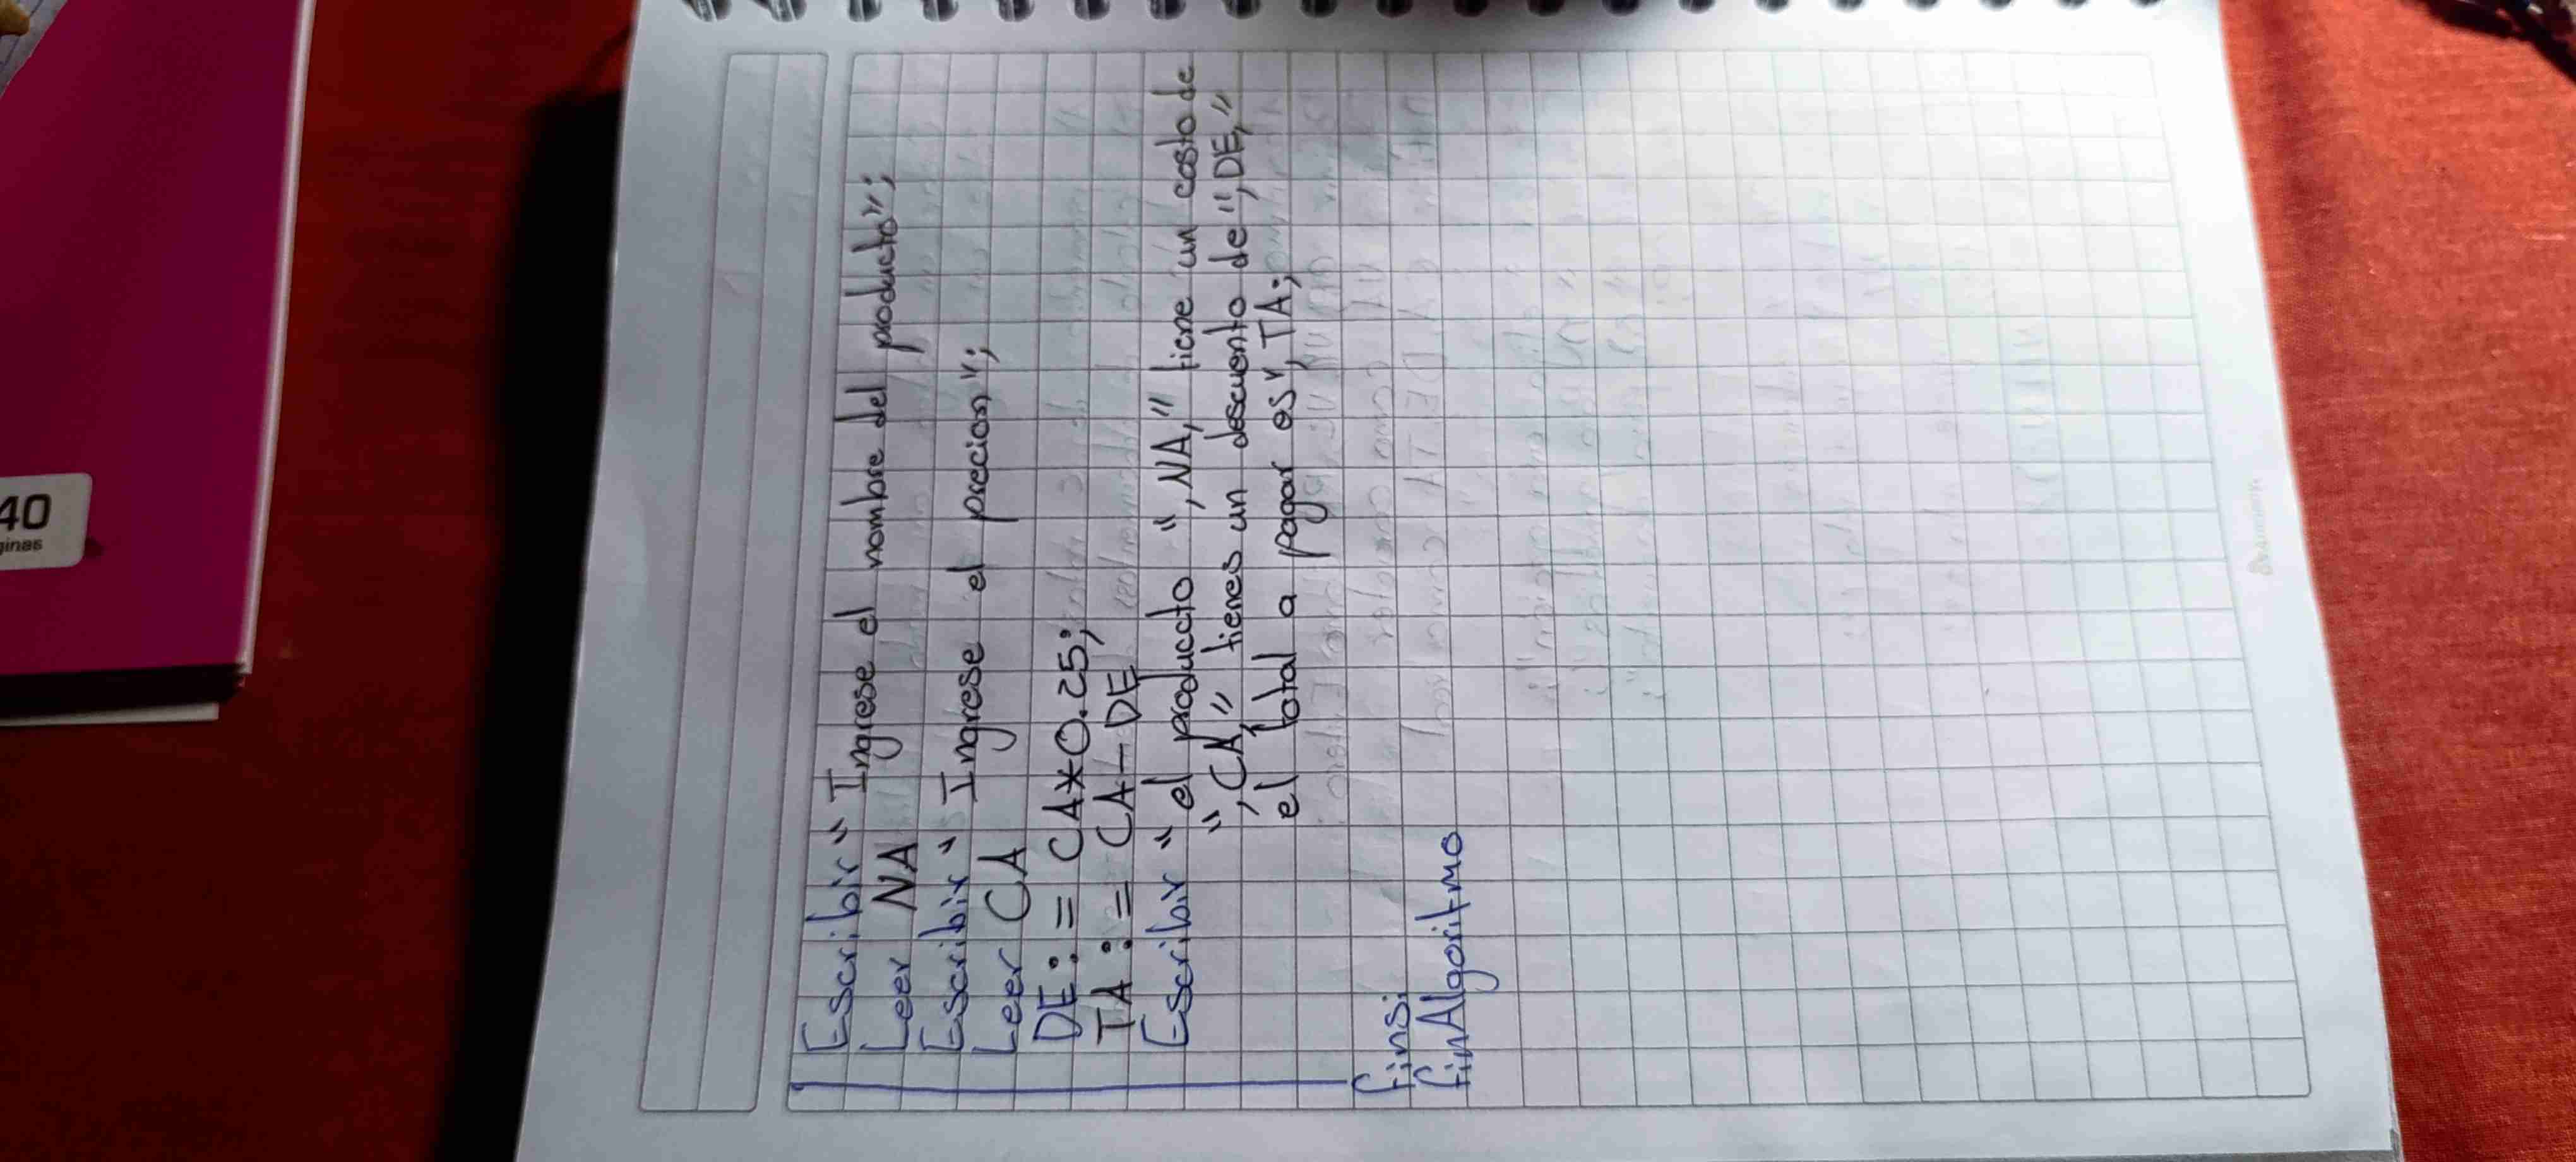 Escribir " Ingrese el nombre del producto";
Leer NA
Escribir " Ingrese el precion";
Leer CA
DE:= CA*0.25;
TA:= CA-DE
Escribir " el producto ",NA," tiene un costo de
",CA," tienes un descuento de",DE,"
el total a pagar es",TA;
finsi
finAlgoritmo
40
ginas